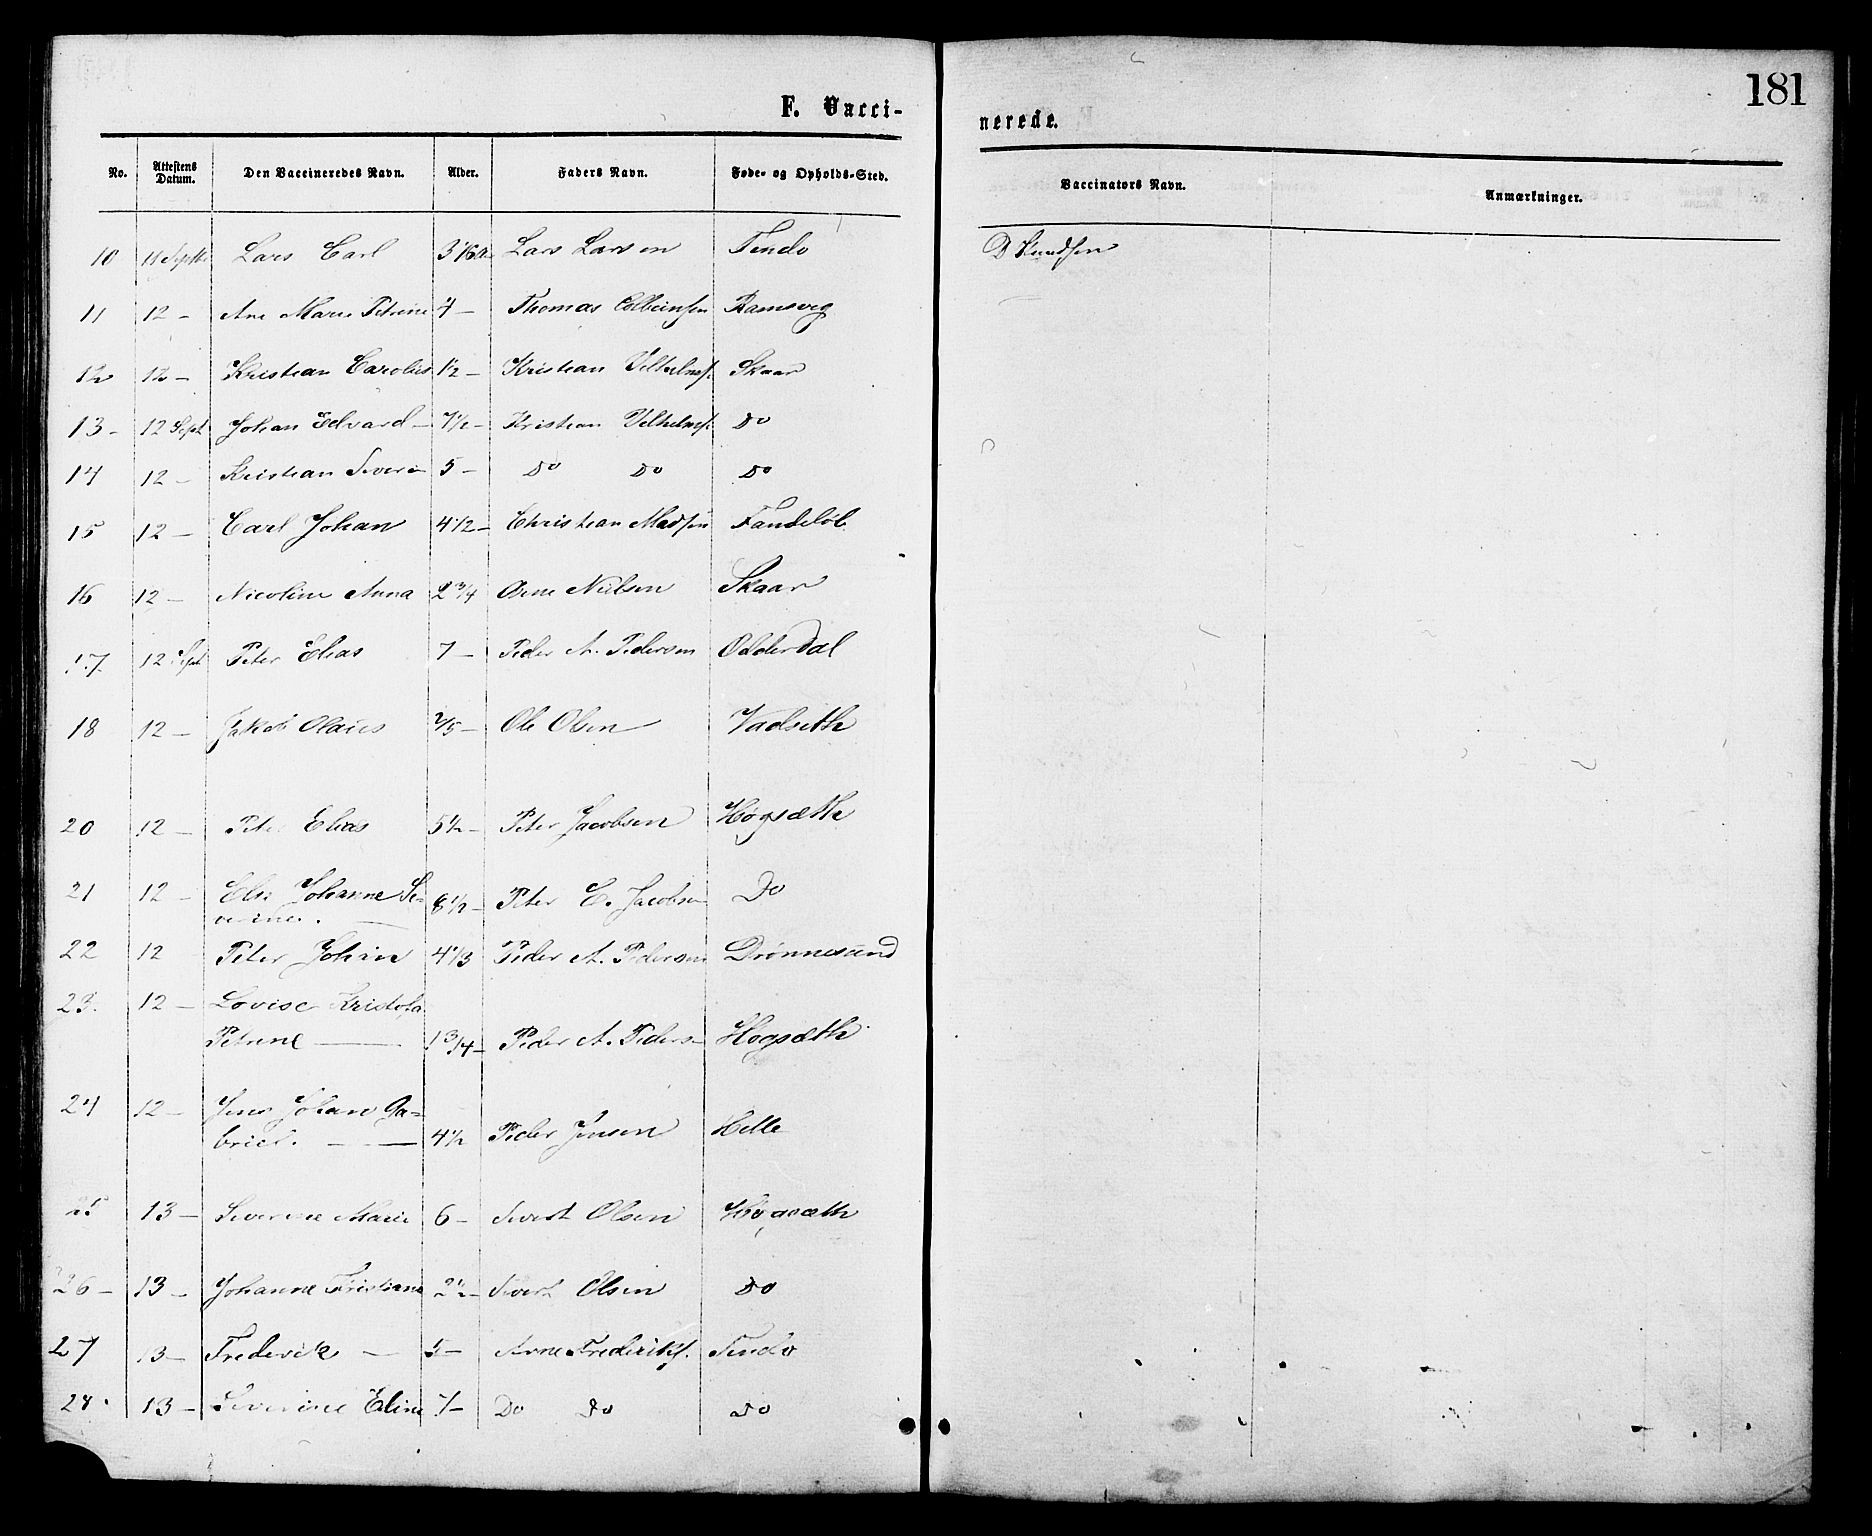 181
F. Vacci-
nerede.
No. Attestens Datum. Den Vaccineredes Navn. Alder. Faders Navn. Føde- og Opholds-Sted. Vaccinatørs Navn. Anmærkninger.
10 11 Septb Lars Carl Lars Larsen Tendø D Knudsen
11 12 - Ane Marie Petrine 4 - Thomas Ramsvig
12 12 - Kristian Carolius 1/2 - Kristian Vilhelmsf. Skaar
13 - 12 Sept Johan Edvard - 7 1/2 - Kristian Vilhelmsf. Do
14 12 - Kristian Severin 5 - Do Do Do
15 12 - Carl Johan 4 1/2 - Christian Madsen
16 12 - Nicoline Anna 2 3/4 Arne Nielsen Skaar
17 12 Sept Peter Elias 7 - Peder A. Pedersen Odderdal
18 12 - Jakob Olaus 2/5 - Ole Olsen Vadseth
20 12 - Peter Elias 5 1/2 - Peter Jacobsen Høgsæth
21 12 - Else Johanne Se-
verine. 8 1/2 - Peter E. Jacobsen Do
22 12 Peter Johan 4 1/3 Peder A. Pedersen Drønnesund
23. 12 - Lovise Kristofa
Petrine 1 3/4 - Peder A. Peders Høgsæth
24 12 - Jens Johan Ga-
briel. 4 1/2 Peder Jensen Helle
25 13 - Severine Marie 6 - Sivert Olsen Høgsæth
26 - 13 - Johanne Kristiane 2 1/2 - Sivert Olsen Do
27 13 - Frederik - 5 - Arne Frederiksf. Tendø
28. 13 - Severine Eline 7 - Do Do Do